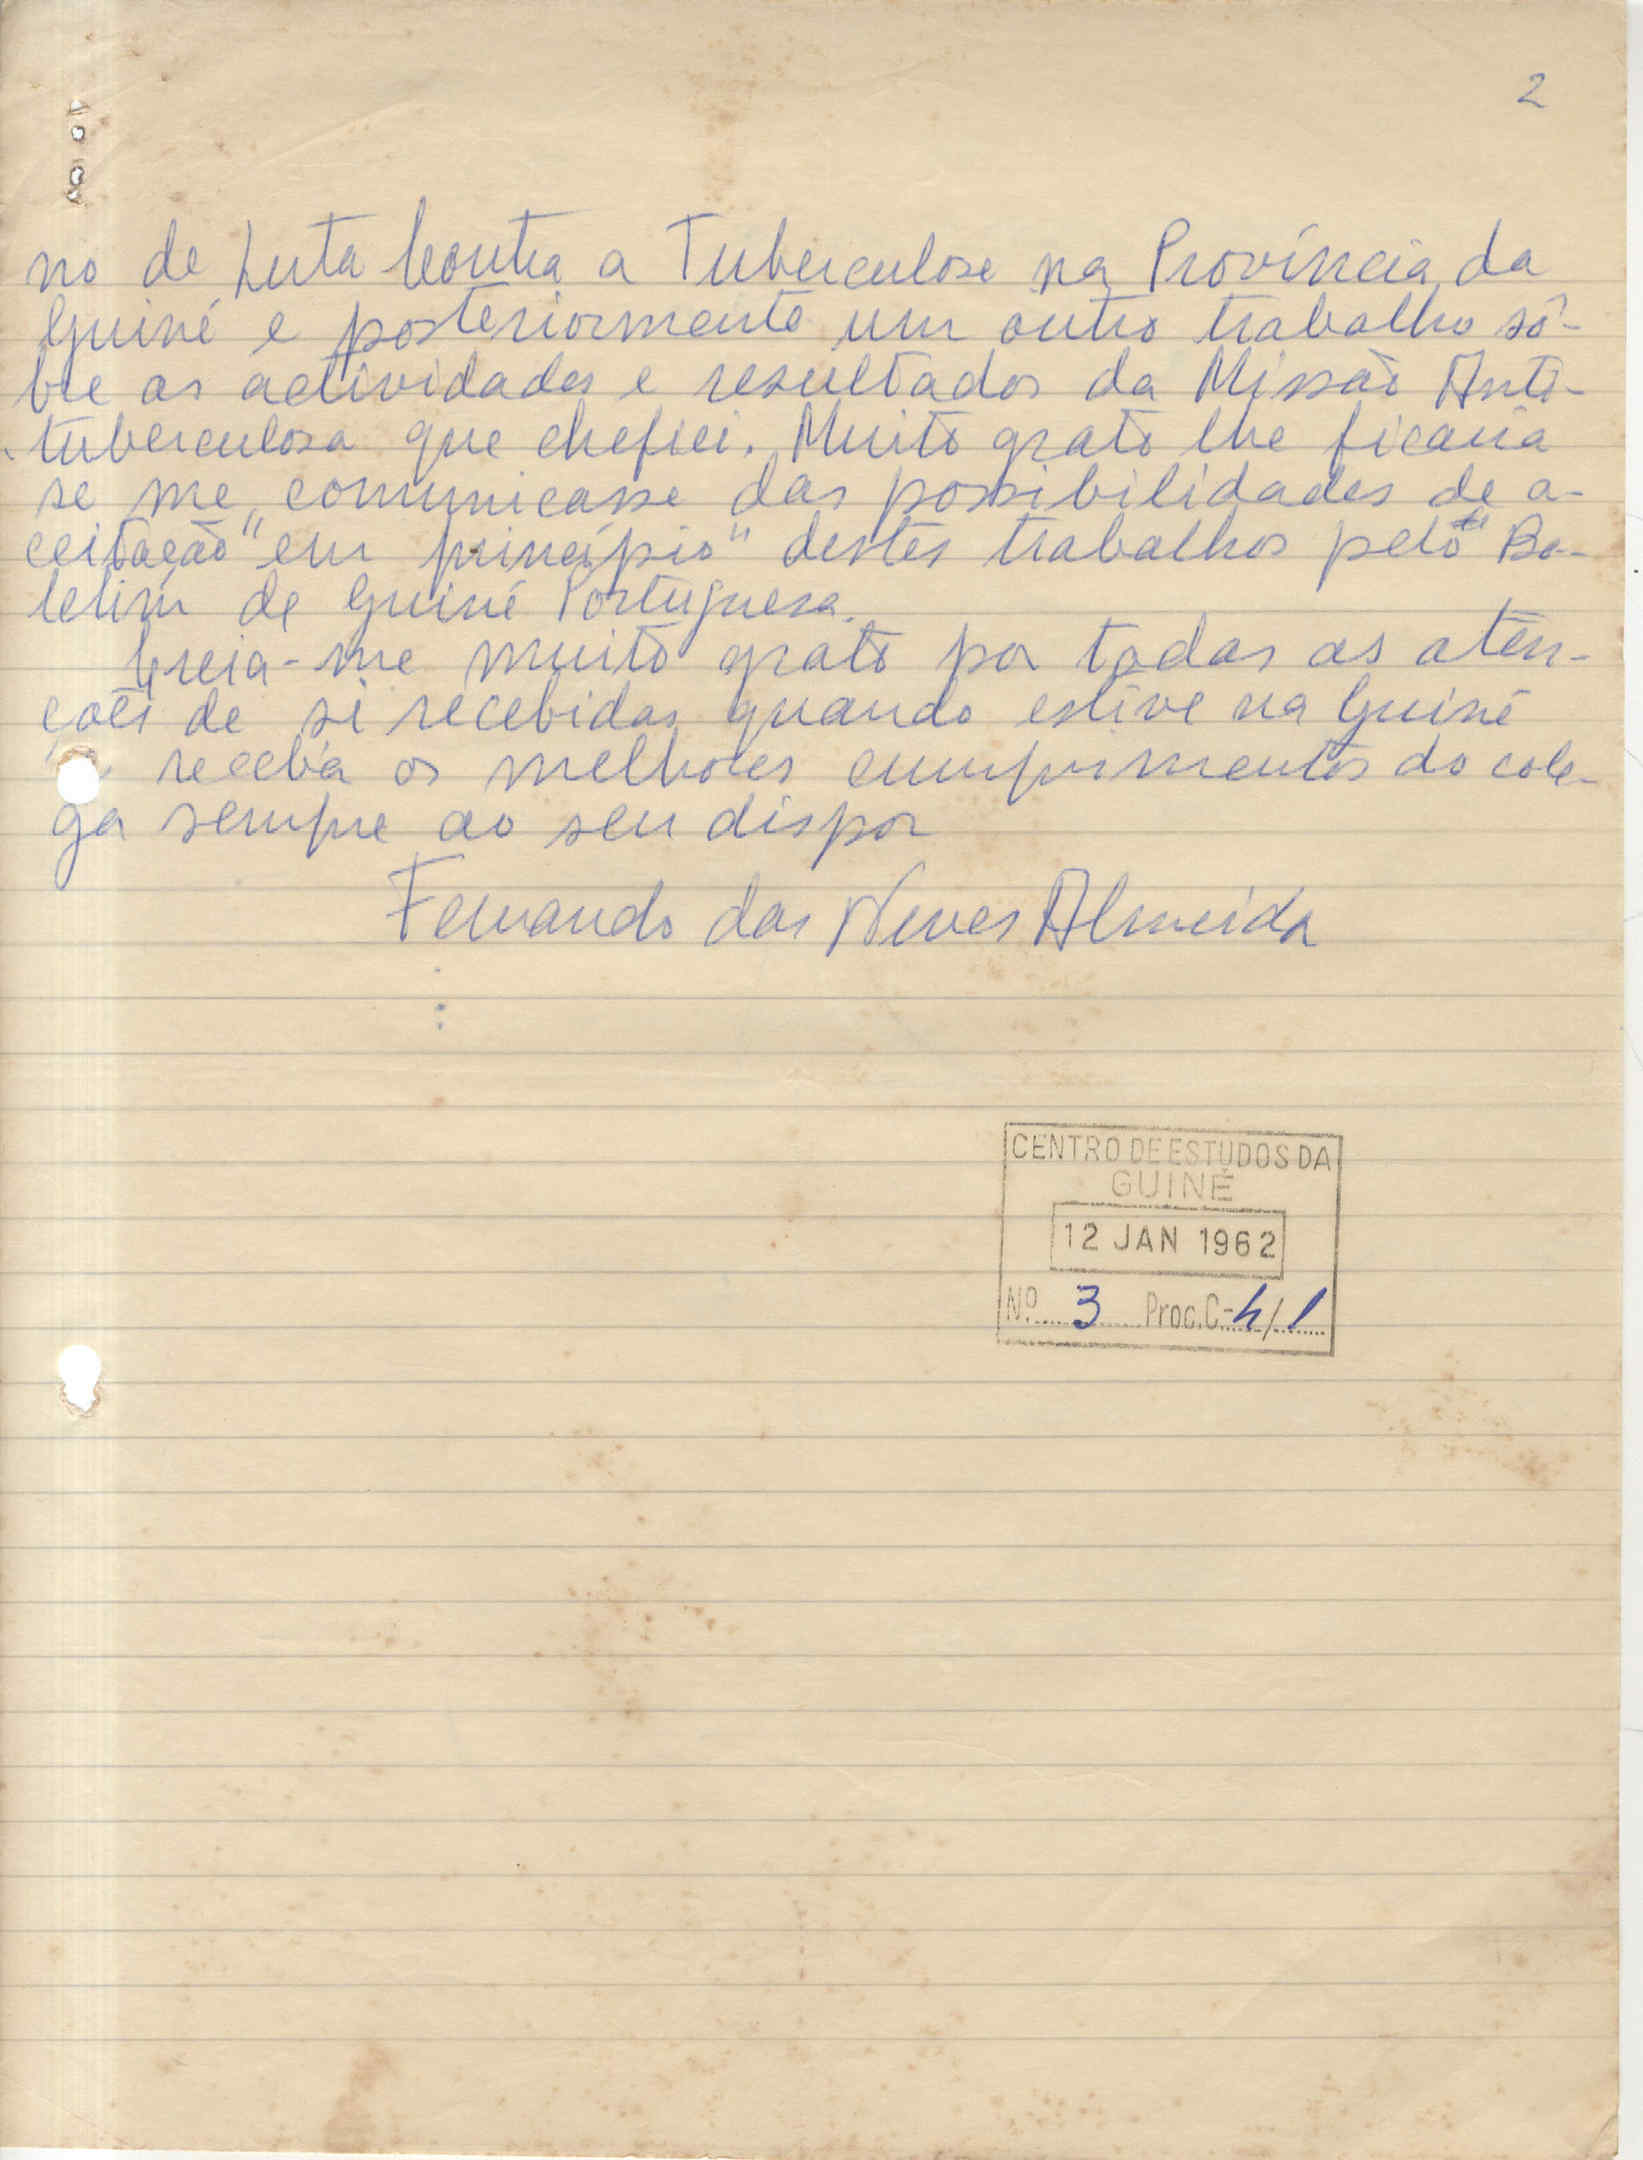 2
no de Luta Contra a Tuberculose na Província da
Guiné e posteriormente um outro trabalho sô-
bre as actividades e resultados da Missão Anti-
tuberculosa que chefiei. Muito grato lhe ficaria
se me comunicasse das possibilidades de a-
ceitação "em princípio" destes trabalhos pelo "Bo-
letim de Guiné Portuguesa.
Creia-me muito grato por todas as aten-
ções de si recebidas quando estive na Guiné
receba os melhores cumprimentos do cole-
ga sempre ao seu dispor
Fernando das Neves Almeida
CENTRO DE ESTUDOS DA
GUINÉ
12 JAN 1962
Nº 3 Proc. C-4/1